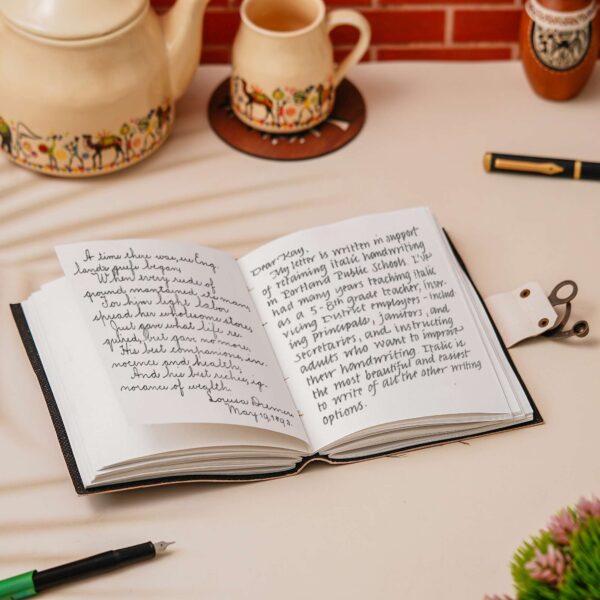 A time there was, ere Eng
lands griefs began,
When every rood of
ground maintained its man
For him light labor
spread her wholesome store,
Just gave what life re
quired, but gave no more,
His best companions, in
nocence and health,
And his best riches, ig
norance of wealth.
Louisa
May 19, 1893.
Dear Kay,
My letter is written in support
of retaining Italic handwriting
in Portland Public Schools. I've
had many years teaching Italic
as a 5-8th grade teacher, inser-
vicing District employees - includ
ing principals, janitors, and
secretaries, and instructing
adults who want to improve
their handwriting. Italic is
the most beautiful and easiest
to write of all the other writing
options.